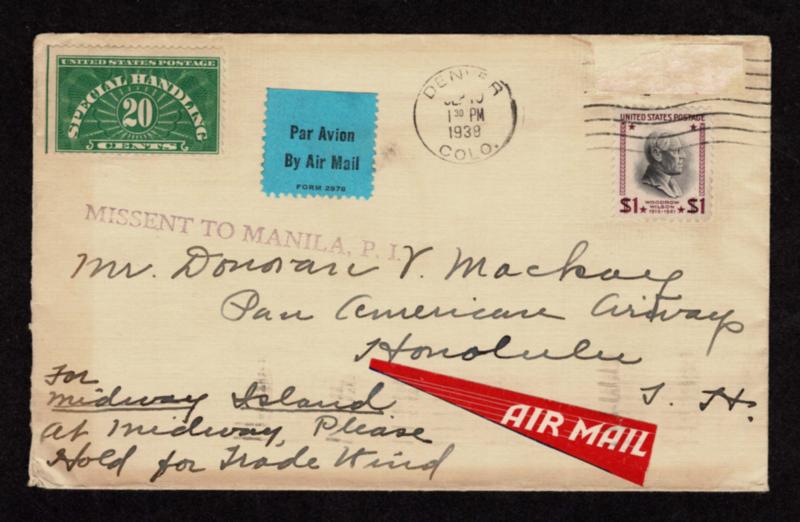 UNITED STATES POSTAGE
SPECIAL HANDLING
20
CENTS
Par Avion
By Air Mail
FORM 2978
DENVER
SEP 10
1 30 PM
1938
COLO.
UNITED STATES POSTAGE
$1 $1
WOODROW
WILSON
1913-1921
MISSENT TO MANILA, P. I.
Mr. Donovan V. Mackay
Pan American Airways
Honolulu
T. H.
For
Midway Island
At Midway, Please
Hold for Trade Wind
AIR MAIL